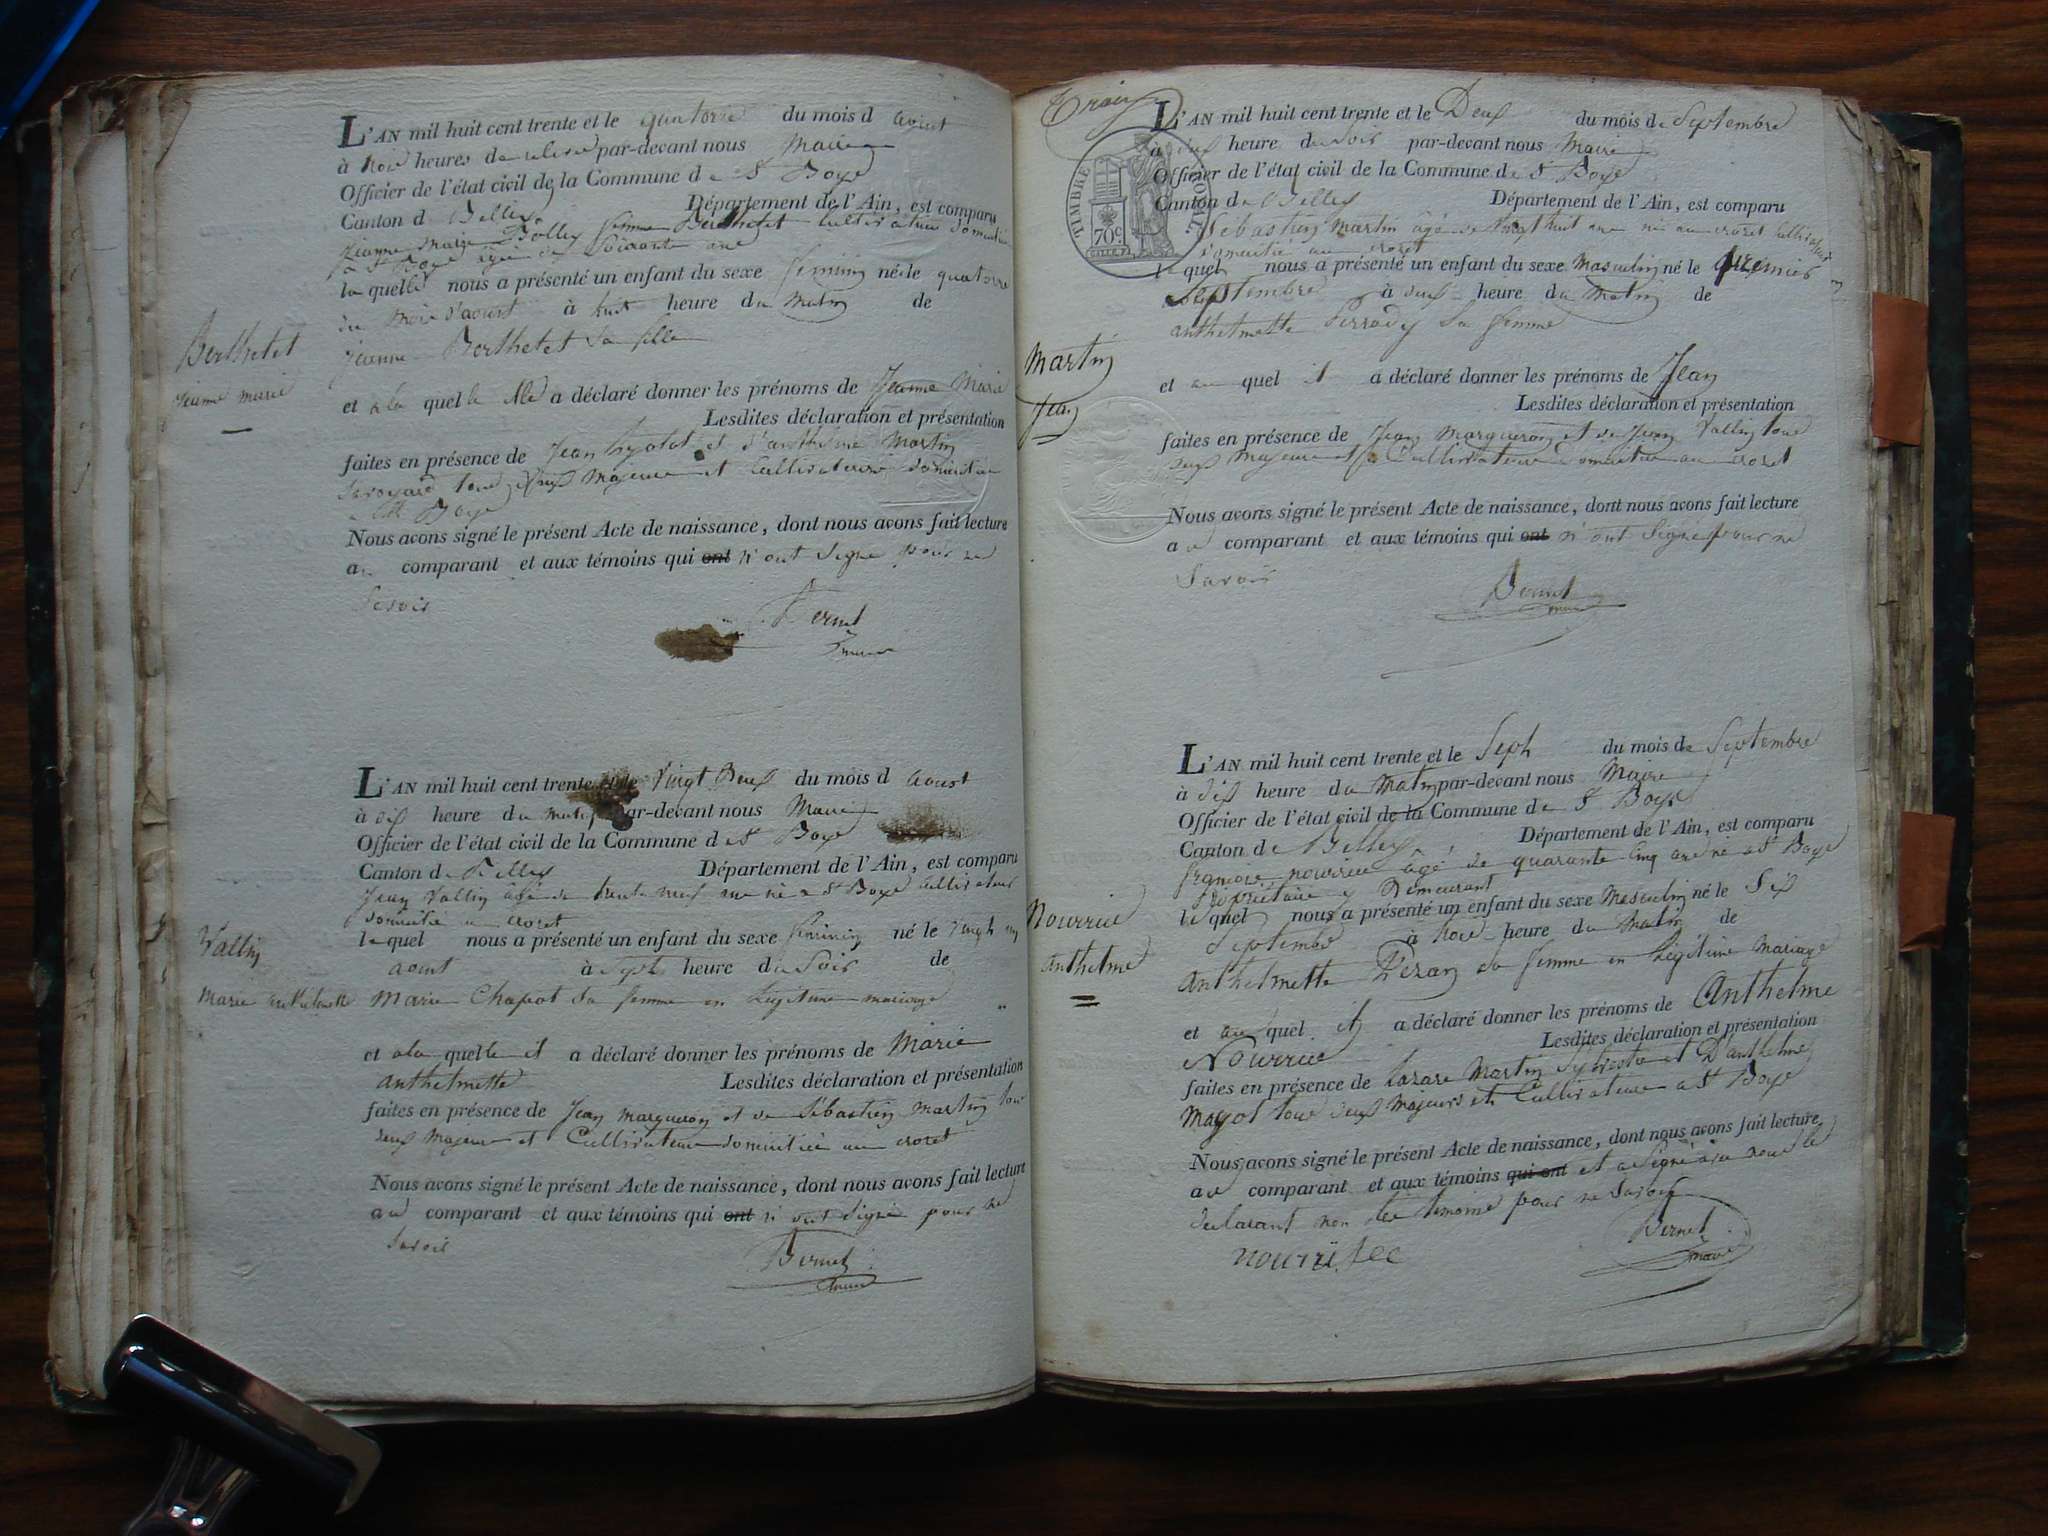 Berthelet
jeanne marie
L'AN mil huit cent trente et le quatorze du mois d aoust
à trois heures de relevé par-devant nous Maire
Officier de l'état civil de la Commune de St Boys
Canton d Belley Département de l'Ain, est comparu
jeanne marie Bolley femme Berthelet Cultivatrice domiciliée
a St Boys agée de Soixante ans
la quelle nous a présenté un enfant du sexe feminin né le quatorze
du mois d'aoust à huit heure du matin de
jeanne Berthelet sa fille
et a la quelle elle a déclaré donner les prénoms de Jeanne Marie
Lesdites déclaration et présentation
faites en présence de Jean et d'anthelme Martin
Savoyard tous deux Majeurs et Cultivateurs domiciliés
a St Boys
Nous avons signé le présent Acte de naissance, dont nous avons fait lecture
au comparant et aux témoins qui ont n'ont Signé pour ne
Savoir
Bernet
maire
Vallin
Marie anthelmette
L'AN mil huit cent trente et le Vingt Deux du mois d aoust
à dix heure du matin par-devant nous Maire
Officier de l'état civil de la Commune de St Boys
Canton de Belley Département de l'Ain, est comparu
Jean Vallin âgé de trente neuf ans né a St Boys cultivateur
domicilié au croret
le quel nous a présenté un enfant du sexe feminin né le Vingt un
aoust à Sept heure du Soir de
Marie Chapot sa femme en Legitime mariage
et a la quelle il a déclaré donner les prénoms de Marie
anthelmette Lesdites déclaration et présentation
faites en présence de Jean Margueron et de Sébastien Martin tous
deux Majeurs et Cultivateurs domiciliés au croret
Nous avons signé le présent Acte de naissance, dont nous avons fait lecture
au comparant et aux témoins qui ont n'ont Signé pour ne
Savoir
Bernet
maire
TIMBRE ROYAL
70c.
Martin
Jean
L'AN mil huit cent trente et le Deux du mois de Septembre
à heure du Soir par-devant nous Maire
Officier de l'état civil de la Commune de St Boys
Canton de Belley Département de l'Ain, est comparu
Sébastien Martin âgé de vingt huit ans né au croret cultivateur
domicilié au croret
le quel nous a présenté un enfant du sexe masculin né le premier
Septembre à deux heure du matin de
anthelmette Perrody Sa femme
et au quel il a déclaré donner les prénoms de Jean
Lesdites déclaration et présentation
faites en présence de Jean Margueron et de Jean Vallin tous
deux Majeurs et Cultivateurs domiciliés au croret
Nous avons signé le présent Acte de naissance, dont nous avons fait lecture
au comparant et aux témoins qui ont n'ont Signé pour ne
Savoir
Bernet
maire
Nourrice
anthelme
L'AN mil huit cent trente et le Sept du mois de Septembre
à dix heure du Matin par-devant nous Maire
Officier de l'état civil de la Commune de St Boys
Canton de Belley Département de l'Ain, est comparu
françois nourrice âgé de quarante cinq ans né a St Boys
Propriétaire y Demeurant
le quel nous a présenté un enfant du sexe Masculin né le Six
Septembre à trois heure du Matin de
anthelmette Pézan sa femme en Légitime Mariage
et au quel il a déclaré donner les prénoms de Anthelme
Nourrice Lesdites déclaration et présentation
faites en présence de Lazare Martin Sylvestre et D'anthelme
Mayot tous deux Majeurs et Cultivateurs a St Boys
Nous avons signé le présent Acte de naissance, dont nous avons fait lecture
au comparant et aux témoins qui ont et a Signé avec nous le
declarant non les temoins pour ne Savoir
Bernet
maire